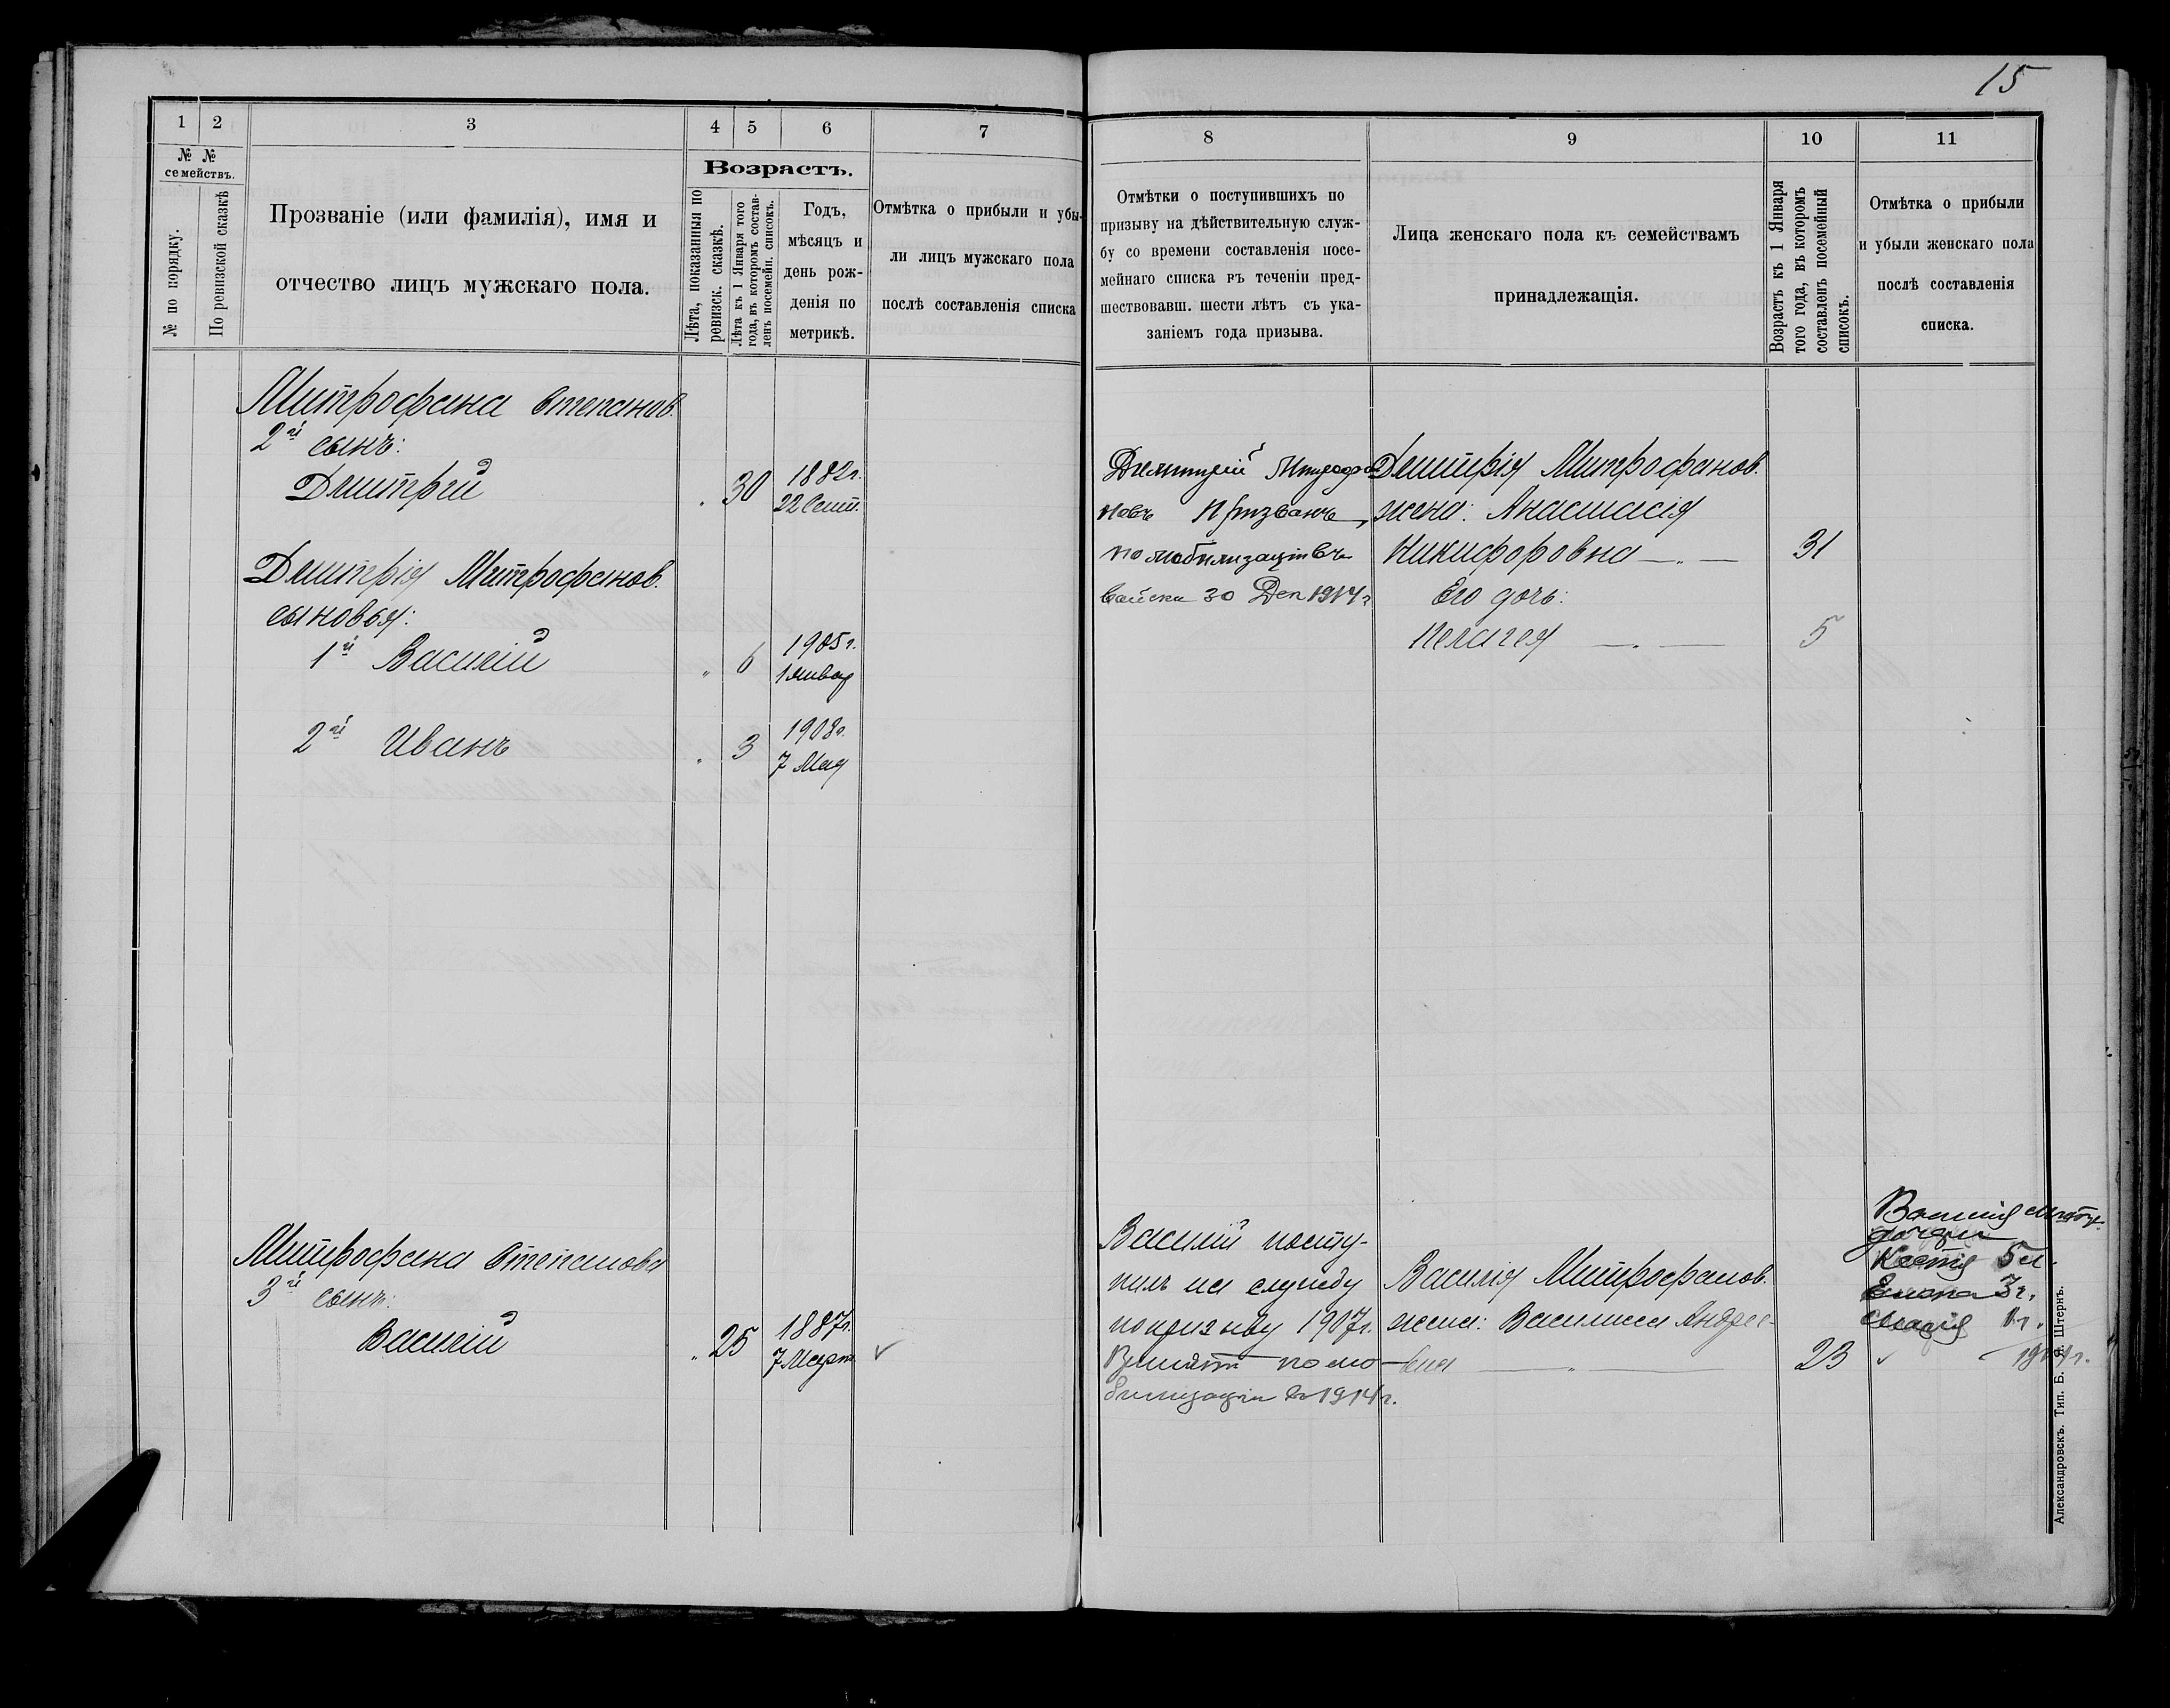 15
1 2 3 4 5 6 7
№ №
семействъ.
№ по порядку.
По ревизской сказкѣ
Прозваніе (или фамилія), имя и
отчество лицъ мужскаго пола.
Возрастъ.
Лѣта, показанныя по
ревизск. сказкѣ.
Лѣта къ 1 Января того
года, въ которомъ состав-
ленъ посемейн. списокъ.
Годъ,
мѣсяцъ и
день рож-
денія по
метрикѣ.
Отмѣтка о прибыли и убы-
ли лицъ мужскаго пола
послѣ составленія списка
Митрофана Степанов.
2й сынъ:
Дмитрій " 30 1882г.
22 Сент.
Дмитрія Митрофанов.
сыновья:
1й Василій " 6 1905г.
1 Январ
2й Иванъ " 3 1908г.
7 Мая
Митрофана Степанова
3й сынъ:
Василій " 25 1887г.
7 Март.
8 9 10 11
Отмѣтки о поступившихъ по
призыву на дѣйствительную служ-
бу со времени составленія посе-
мейнаго списка въ теченіи пред-
шествовавш. шести лѣтъ съ ука-
заніемъ года призыва.
Лица женскаго пола къ семействамъ
принадлежащія.
Возрастъ къ 1 Января
того года, въ которомъ
составленъ посемейный
списокъ.
Отмѣтка о прибыли
и убыли женскаго пола
послѣ составленія
списка.
Дмитрій Митрофа
новъ Призванъ
по мобилизаціи въ
войска 30 Дек 1914г
Дмитрія Митрофанов.
жена: Анастасія
Никифоровна — " — 31
Его дочь:
Пелагея — " — 5
Василій посту-
пилъ на службу
по призыву 1907г.
Взятъ по мо-
билизаціи въ 1914г.
Василія Митрофанов.
жена: Василиса Андре-
евна — " — 23
Василія Митр.
дочери
5 л.
Елена 3г.
Марія 1г.
1914г.
Александровскъ. Тип. Б. Я. Штернъ.